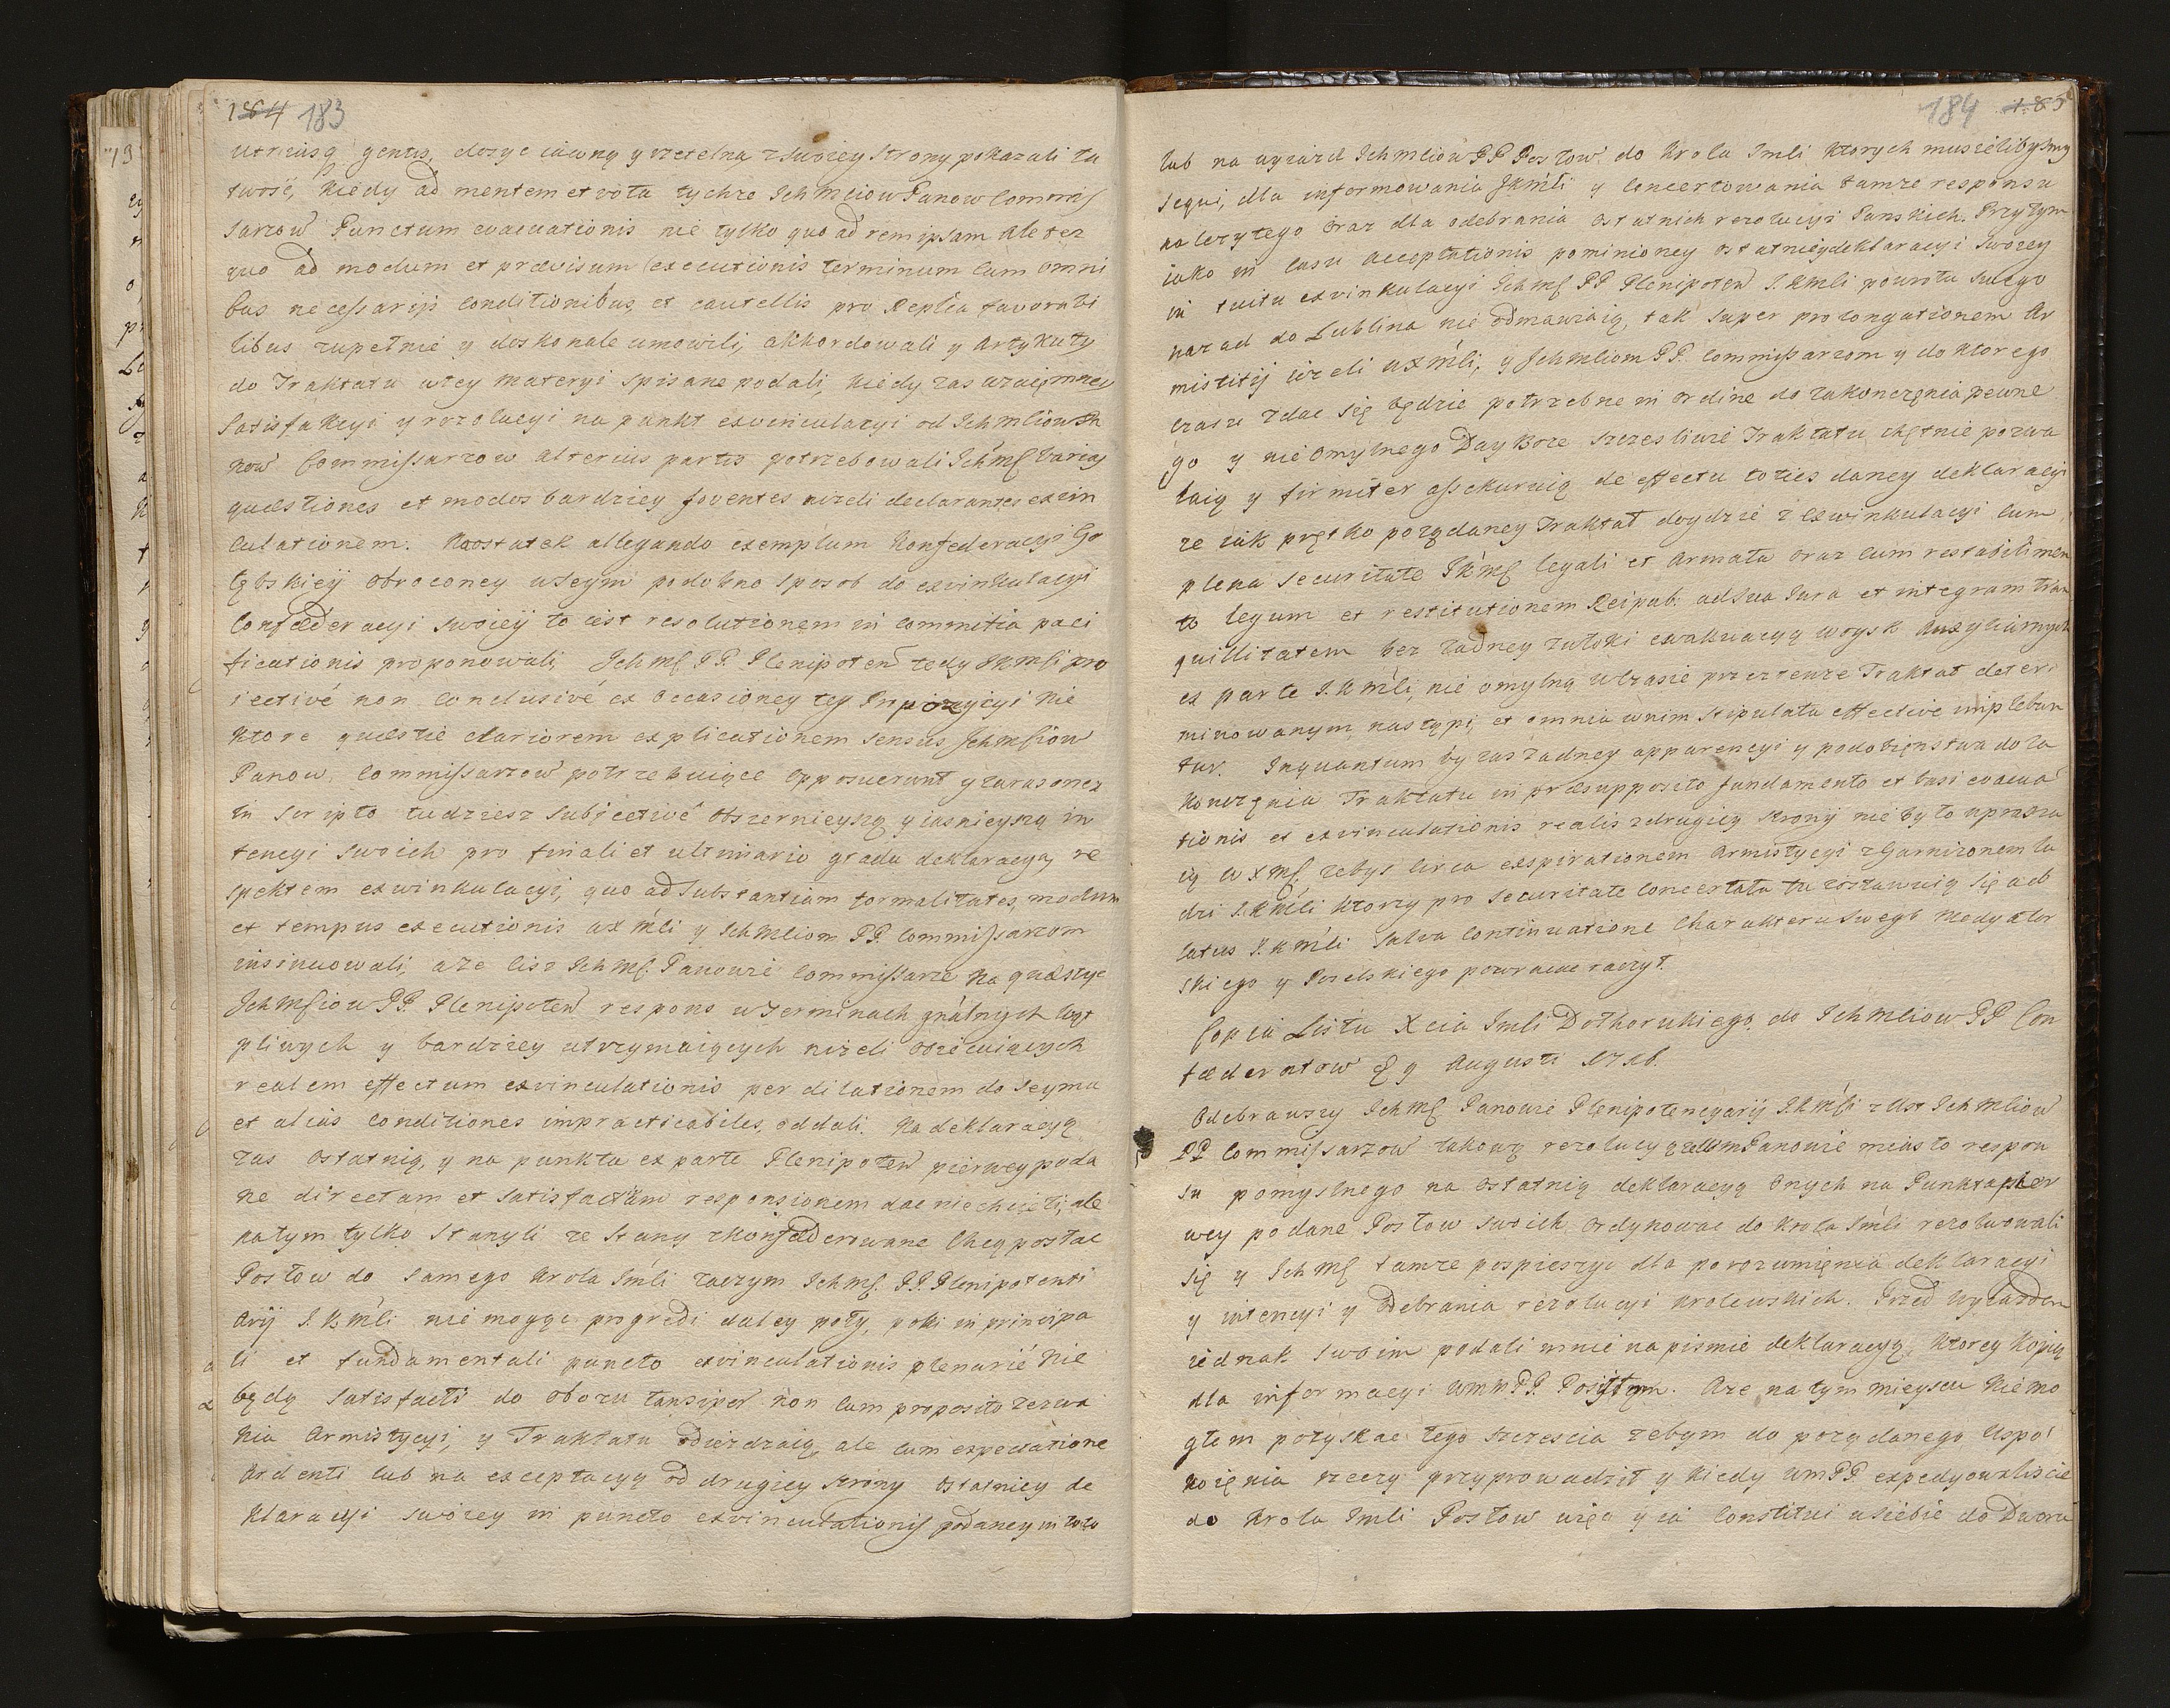 184 183
utriusq gentis, dosyc iawną y rzetelna z swoiey strony pokazali ła
twość, kiedy ad mentem et vota tychże Ichmciow Panow Commis
sarzow Punctum evacuationis nie tylko quo ad rem ipsam ale też
quo ad modum et prævisum executionis terminum cum omni
bus necessarijs conditionibus et cautellis pro Replca favorabi
libus zupełnie y doskonale umowili, akkordowali y Artykuły
do Traktatu w tey materyi spisane podali, kiedy zas wzaięmney
Satisfakcyi y rezolucyi na punkt exvinculacyi od Ichmciow Pa
now Commissarzow alterius partis potrzebowali Ichmć varias
quæstiones et modos bardziey foventes niżeli declarantes exvin
culationem. Naostatek allegando exemplum Konfederacyi Go
łębskiey obroconey w Seym podobno sposob do exvinkulacyi
Confæderacyi swoiey to iest resolutionem in Commitia paci
ficationis proponowali, Ichmć PP. Plenipoten tedy JKmści pro
iective non conclusive ex occasioney tey Propozycyi nie
ktore quæstie clariorem explicationem sensus Ichmściow
Panow Commissarzow potrzebuiące opposuerunt y zaraz onez
in scripto tudziesz subjective obszernieyszą y iasnieyszą in
tencyi swoich pro finali et ultimario gradu deklaracyą, re
spektem exwinkulacyi, quo ad substantiam formalitates, modum
et tempus executionis WXMći y Ichmciom PP. Commissarzom
insinuowali, aże lisz Ichmć. Panowie Commissarze na quæstye
Ichmściow PP. Plenipoten respons w terminach gnalnych wąt
pliwych y bardziey utrzymaiących niżeli obiecuiących
realem effectum exvinculationis per dilationem do Seymu
et alias conditiones impracticabiles, oddali. Na deklaracyą
zas ostatnią, y na punkta ex parte Plenipoten pierwey poda
ne directam et satisfactam responsionem dac niechcieli, ale
natym tylko stanyli ze Stany zkonfæderowane Chcą posłac
Posłow do samego Krola Imći zaczym Ichmć. PP. Plenipotenti
arij J. K Mći nie mogąc progredi daley poty, poki in principa
li et fundamentali puncto exvinculationis plenarie nie
będą satisfacti do obozu tansiper non cum proposito zerwa
nia Armistycyi, y Traktatu odieżdzaią, ale cum expectatione
ardenti lub na exceptacyą od drugiey strony ostatniey de
klaracyi swoiey in puncto exvinculationis podaney in toto
184 185
lub na wyiazd Ichmciow PP. Posłow do Krola Imći ktorych musielibysmy
sequi, dla informowania JKmći y concertowania tamze responsu
należytego oraz dla odebrania ostatnich rezolucyi Panskich. Przytym
iako in casu acceptationis pominioney ostatniey deklaracyi swoiey
in tuitu exvinkulacyi Ichmć PP Plenipoten J. KMći powrotu swego
nazad do Lublina nie odmawiaią, tak super prolongationem Ar
mistitij ieżeli WXMći, y Ichmciom PP. Commissarzom y do ktorego
czasu zdac się będzie potrzebne in ordine do zakonczęnia pewne
go y nie omylnego Day Boze szczesliwie Traktatu chętnie pozwa
laią y firmiter assekuruią de effectu toties daney deklaracyi
ze iak prętko pożądaney Traktat doydzie z exwinkulacyi cum
plena securitate JKmć legali et armata oraz cum restabilimen
to legum et restitutionem Reipub: ad sua Jura et integram tran
quillitatem bez żadney zwłoki ewakuacyą woysk Auxyliarnych
ex parte J. K Mći, nie omylną w czasie przez tenże Traktat deter
minowanym nastąpi, et omnia w nim stipulata effective implebun
tur. Inquantum by zas żadney apparencyi y podobięnstwa do za
konczęnia Traktatu in præsupposito fundamento et basi evacua
tionis et exvinculationis realis z drugiey strony nie było uprasza
ią WXMć. żebyś circa expirationem Armistycyi z Garnizonem lu
dzi J.KMći ktorzy pro securitate concertata tu zostawuią się ad
latus J.K Mći salva Continuatione Charakteru swego Medyator
skiego y Poselskiego powracac raczył.
Copia Listu Xcia Imći Dołhorukiego do Ichmciow PP Con
fæderatow d 9 Augusti 1716.
Odebrawszy Ichmć Panowie Plenipotencyarij J.K Mści z Ust Ichmciow
PP Commissarzow takową rezolucyą ze Wm Panowie miasto respon
su pomyslnego na ostatnią deklaracyą onych na Punkta pier
wey podane Posłow swoich ordynowac do Krola Imći rezolwowali
się y Ichmć tamze pospieszyc dla porozumięnia deklaracyi
y intencyi y odebrania rezolucyi Krolewskich. Przed wyiazdem
iednak swoim podali mnie na pismie deklaracyą, ktorey kopią
dla informacyi WmmPP. Posyłam. Aże na tym mieyscu nie mo
głem pozyskac tego szczescia zebym do pożądanego Uspo
koięnia rzeczy przyprowadził y kiedy WmPP. expedyowaliscie
do Krola Imći Posłow więc y ia Constitui u siebie do Dworu